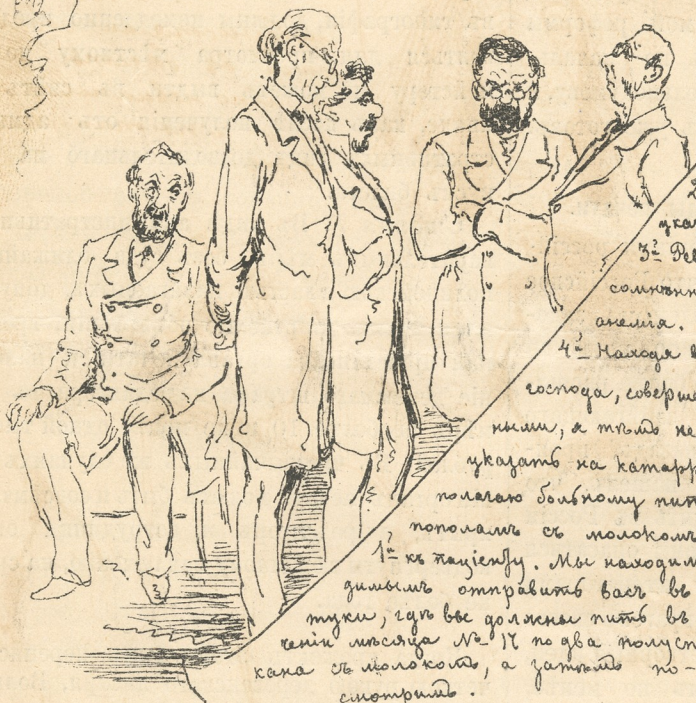 ука
3й Рев
сомнѣнн
анемія.
4й Находя в
господа, соверше
ными, я тѣмъ не
указать на катарр
полагаю больному пит
пополамъ съ молокомъ
1й къ паціенту. Мы находим
димымъ отправить васъ въ
туки, гдѣ вы должны пить въ
ченіи мѣсяца № 17 по два полуст
кана съ молокомъ, а затѣмъ по-
смотримъ.